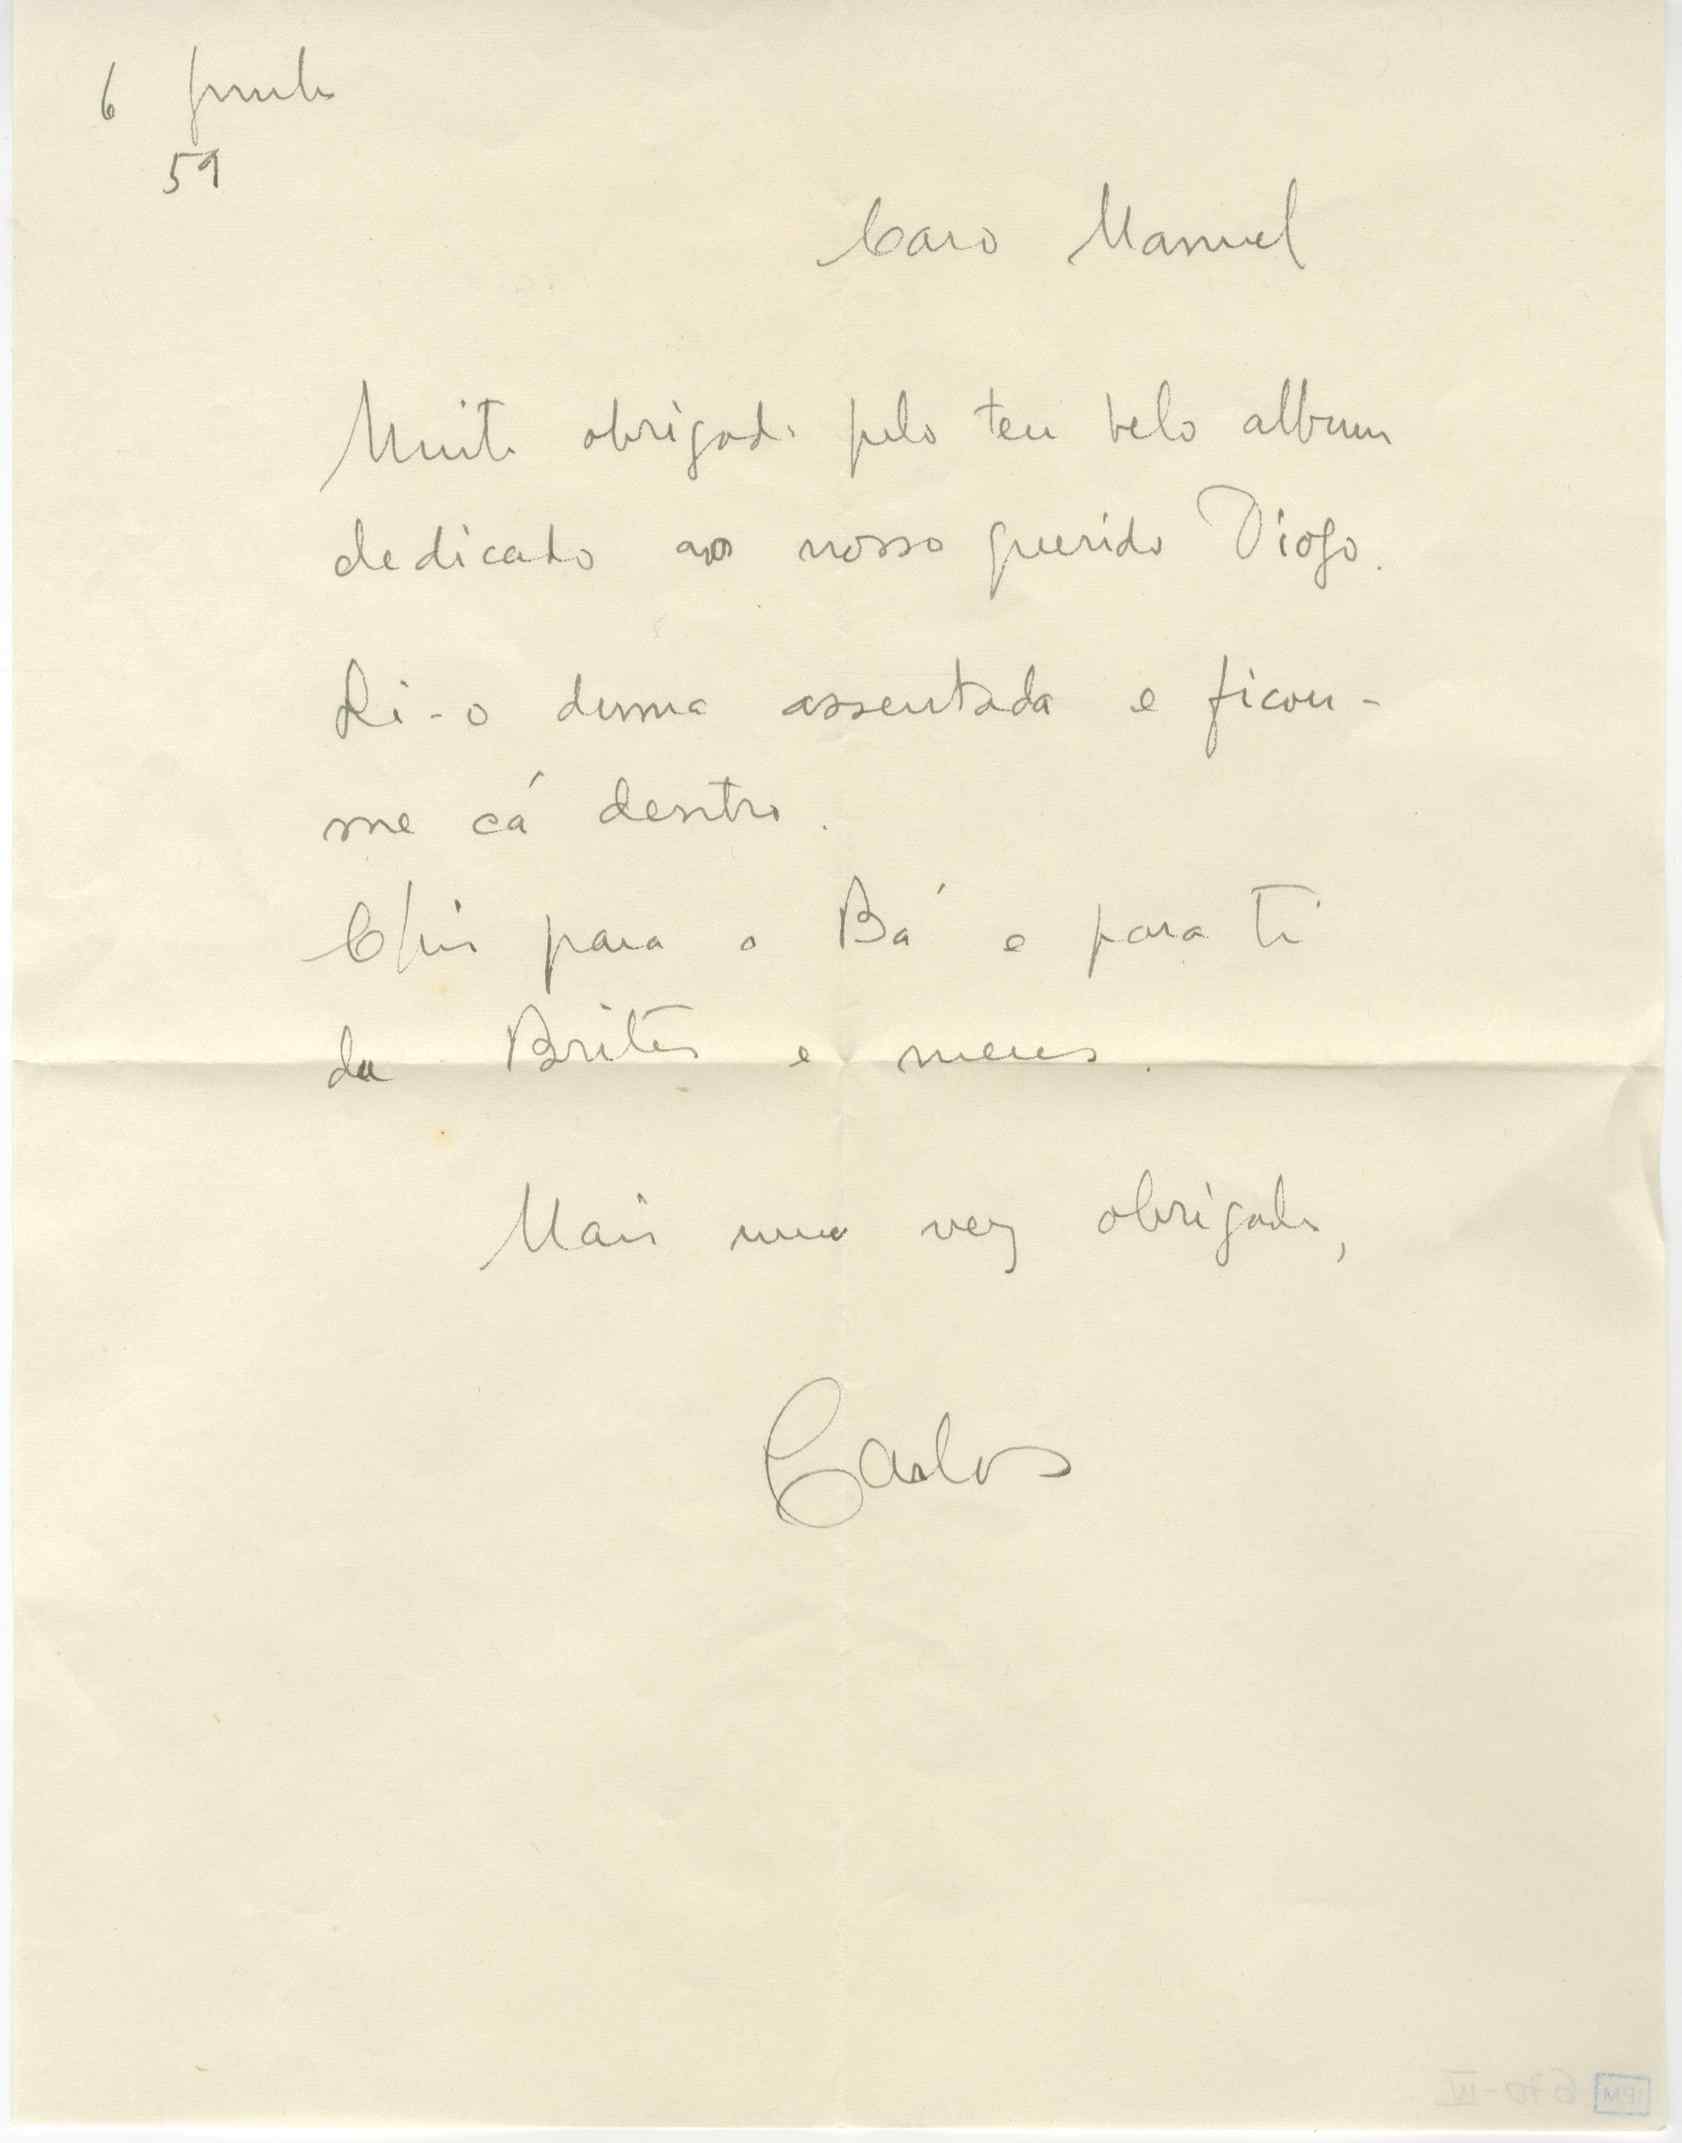 6 Junho
59
Caro Manuel
Muito obrigado pelo teu belo album
dedicado ao nosso querido Diogo.
Li-o duma assentada e ficou-
me cá dentro.
Chis para o Bá e para ti
da Brites e meus.
Mais uma vez obrigado,
Carlos